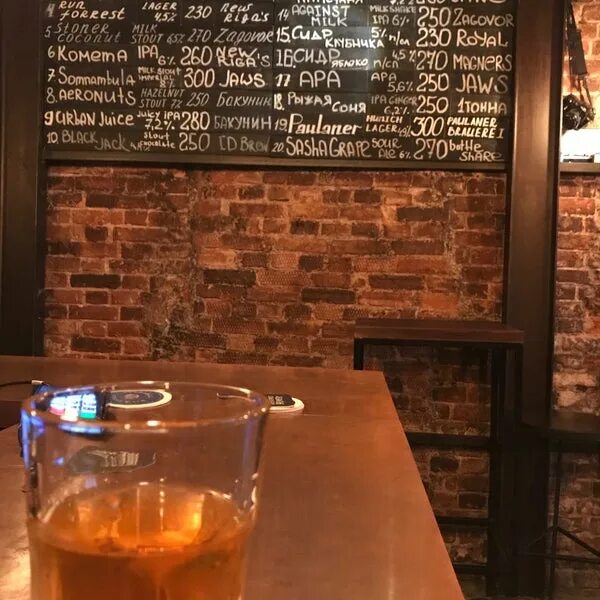 4 RUN FORREST LAGER 4,5% 230 NEW RIGA'S
5 STONER COCONUT MILK STOUT 6,5% 270 ZAGOVOR
6 КОМЕТА IPA 6% 260 NEW RIGA'S
7 Somnambula MILK STOUT 300 JAWS
8 AERONUTS HAZELNUT STOUT 7% 250 БАКУНИН
9 URBAN JUICE JUICY IPA 7,2% 280 БАКУНИН
10 BLACK JACK STOUT CHOCOLATE 250 CD BREW
14 AGAINST MILK MILKSHAKE IPA 6% 250 ZAGOVOR
15 СИДР КЛУБНИКА 5% п/сл 230 ROYAL
16 СИДР ЯБЛОКО 4,5% п/сл 270 MAGNERS
17 APA APA 5,6% 250 JAWS
18 РЫЖАЯ СОНЯ IPA GINGER 6,2% 250 1 ТОННА
19 Paulaner MUNICH LAGER 4,9% 300 PAULANER BRAUEREI
20 SASHA GRAPE SOUR ALE 6% 270 bottle SHARE